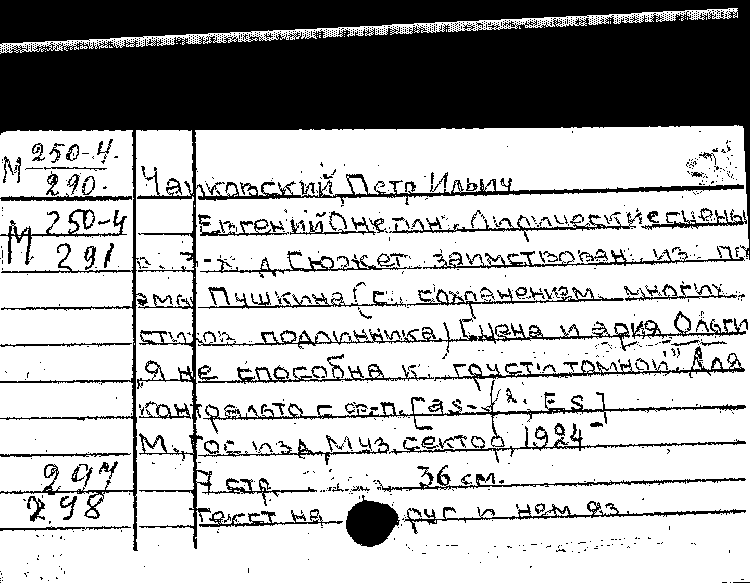 М 250-4.
290.
Чайковский, Петр Ильич
М 250-4
291
Евгений Онегин. Лирические сцены
в 3-х д. Сюжет заимствован из по
эмы Пушкина (с сохранением многих
стихов подлинника) Сцена и ария Ольги
"Я не способна к грусти томной". Для
контральто с ф-п. [as-f2; Es]
М., Гос. изд. Муз. сектор, 1924
297
7 стр. 36 см.
298
Текст на рус. и нем яз.